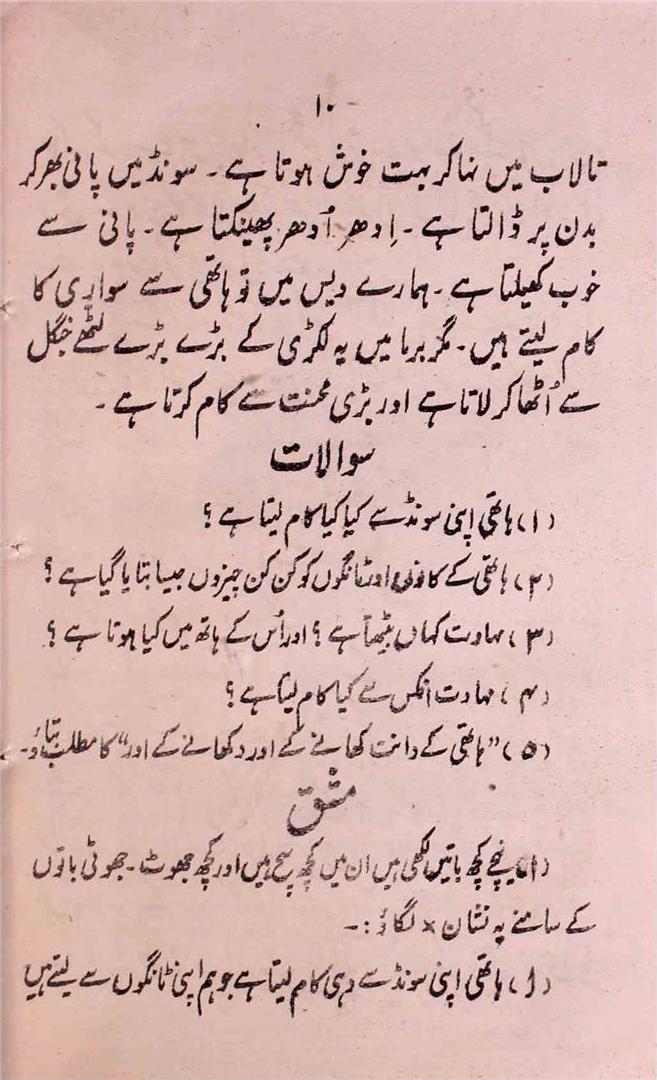 ۱۰
تالاب میں نہا کر بہت خوش ہوتا ہے۔ سونڈ میں پانی بھر کر
بدن پر ڈالتا ہے۔ اِدھر اُدھر پھینکتا ہے۔ پانی سے
خوب کھیلتا ہے۔ ہمارے دیس میں تو ہاتھی سے سواری کا
کام لیتے ہیں۔ مگر برما میں یہ لکڑی کے بڑے بڑے لٹھے جنگل
سے اُٹھا کر لاتا ہے اور بڑی محنت سے کام کرتا ہے۔
سوالات
(۱) ہاتھی اپنی سونڈ سے کیا کیا کام لیتا ہے؟
(۲) ہاتھی کے کانوں اور ٹانگوں کو کن کن چیزوں جیسا بتایا گیا ہے؟
(۳) مہاوت کہاں بیٹھتا ہے؟ اور اُس کے ہاتھ میں کیا ہوتا ہے؟
(۴) مہاوت انکس سے کیا کام لیتا ہے؟
(۵) "ہاتھی کے دانت کھانے کے اور دکھانے کے اور" کا مطلب بتاؤ۔
مشق
(۱) نیچے کچھ باتیں لکھی ہیں ان میں کچھ سچ ہیں اور کچھ جھوٹ۔ جھوٹی باتوں
کے سامنے یہ نشان × لگاؤ:۔
(۱) ہاتھی اپنی سونڈ سے وہی کام لیتا ہے جو ہم اپنی ٹانگوں سے لیتے ہیں